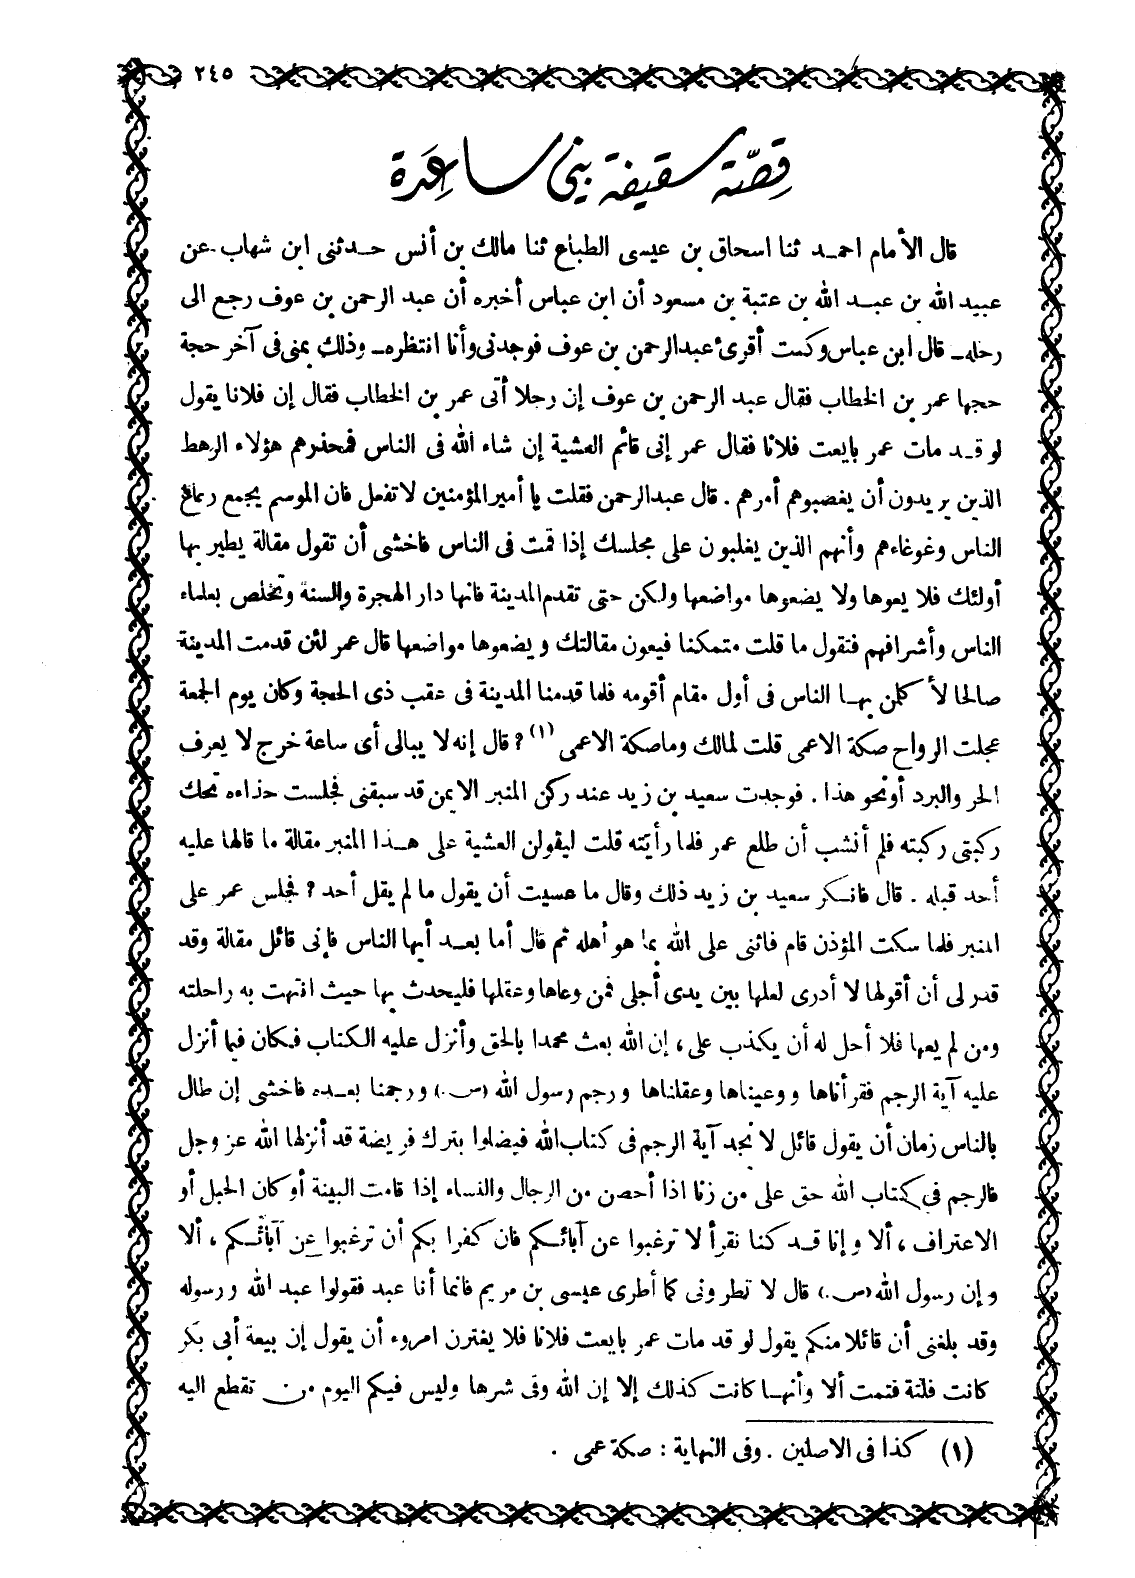 ٢٤٥
قصة سقيفة بنى ساعدة
قال الأمام احمد ثنا اسحاق بن عيسى الطباع ثنا مالك بن أنس حدثنى ابن شهاب عن
عبيد الله بن عبد الله بن عتبة بن مسعود أن ابن عباس أخبره أن عبد الرحمن بن عوف رجع الى
رحله ـ قال ابن عباس وكنت أقرئ عبد الرحمن بن عوف فوجدنى وأنا انتظره ـ وذلك بمنى فى آخر حجة
حجها عمر بن الخطاب فقال عبد الرحمن بن عوف إن رجلا أتى عمر بن الخطاب فقال إن فلانا يقول
لو قد مات عمر بايعت فلانا فقال عمر إنى قائم العشية إن شاء الله فى الناس فمحذرهم هؤلاء الرهط
الذين يريدون أن يغصبوهم أمرهم . قال عبد الرحمن فقلت يا أمير المؤمنين لا تفعل فان الموسم يجمع رعاع
الناس وغوغاءهم وأنهم الذين يغلبون على مجلسك إذا قمت فى الناس فاخشى أن تقول مقالة يطير بها
أولئك فلا يعوها ولا يضعوها مواضعها ولكن حتى تقدم المدينة فانها دار الهجرة والسنة وتخلص بعلماء
الناس وأشرافهم فتقول ما قلت متمكنا فيعون مقالتك ويضعوها مواضعها قال عمر لئن قدمت المدينة
صالحا لأ كلمن بها الناس فى أول مقام أقومه فلما قدمنا المدينة فى عقب ذى الحجة وكان يوم الجمعة
عجلت الرواح صكة الاعمى قلت لمالك وماصكة الاعمى (١) ؟ قال إنه لا يبالى أى ساعة خرج لا يعرف
الحر والبرد أونحو هذا . فوجدت سعيد بن زيد عند ركن المنبر الايمن قد سبقنى فجلست حذاءه تحك
ركبتى ركبته فلم أنشب أن طلع عمر فلما رأيته قلت ليقولن العشية على هذا المنبر مقالة ما قالها عليه
أحد قبله . قال فانكر سعيد بن زيد ذلك وقال ما عسيت أن يقول ما لم يقل أحد ؟ فجلس عمر على
المنبر فلما سكت المؤذن قام فاثنى على الله بما هو أهله ثم قال أما بعد أيها الناس فانى قائل مقالة وقد
قدر لى أن أقولها لا أدرى لعلها بين يدى أجلى فمن وعاها وعقلها فليحدث بها حيث انتهت به راحلته
ومن لم يعها فلا أحل له أن يكذب على ، إن الله بعث محمدا بالحق وأنزل عليه الكتاب فكان فيما أنزل
عليه آية الرجم فقرأناها ووعيناها وعقلناها ورجم رسول الله (س.) ورجمنا بعده فاخشى إن طال
بالناس زمان أن يقول قائل لا نجد آية الرجم فى كتاب الله فيضلوا بترك فريضة قد أنزلها الله عز وجل
فالرجم فى كتاب الله حق على من زنا اذا أحصن من الرجال والنساء إذا قامت البينة أو كان الحبل أو
الاعتراف ، ألا وإنا قد كنا نقرأ لا ترغبوا عن آبائكم فان كفرا بكم أن ترغبوا عن آبائكم ، ألا
وإن رسول الله (س.) قال لا تطرونى كما أطرى عيسى بن مريم فانما أنا عبد فقولوا عبد الله ورسوله
وقد بلغنى أن قائلا منكم يقول لو قد مات عمر بايعت فلانا فلا يغترن امروء أن يقول إن بيعة أبى بكر
كانت فلتة فتمت ألا وأنها كانت كذلك إلا إن الله وفى شرها وليس فيكم اليوم من تقطع اليه
(١) كذا فى الاصلين . وفى النهاية : صكة عمى .